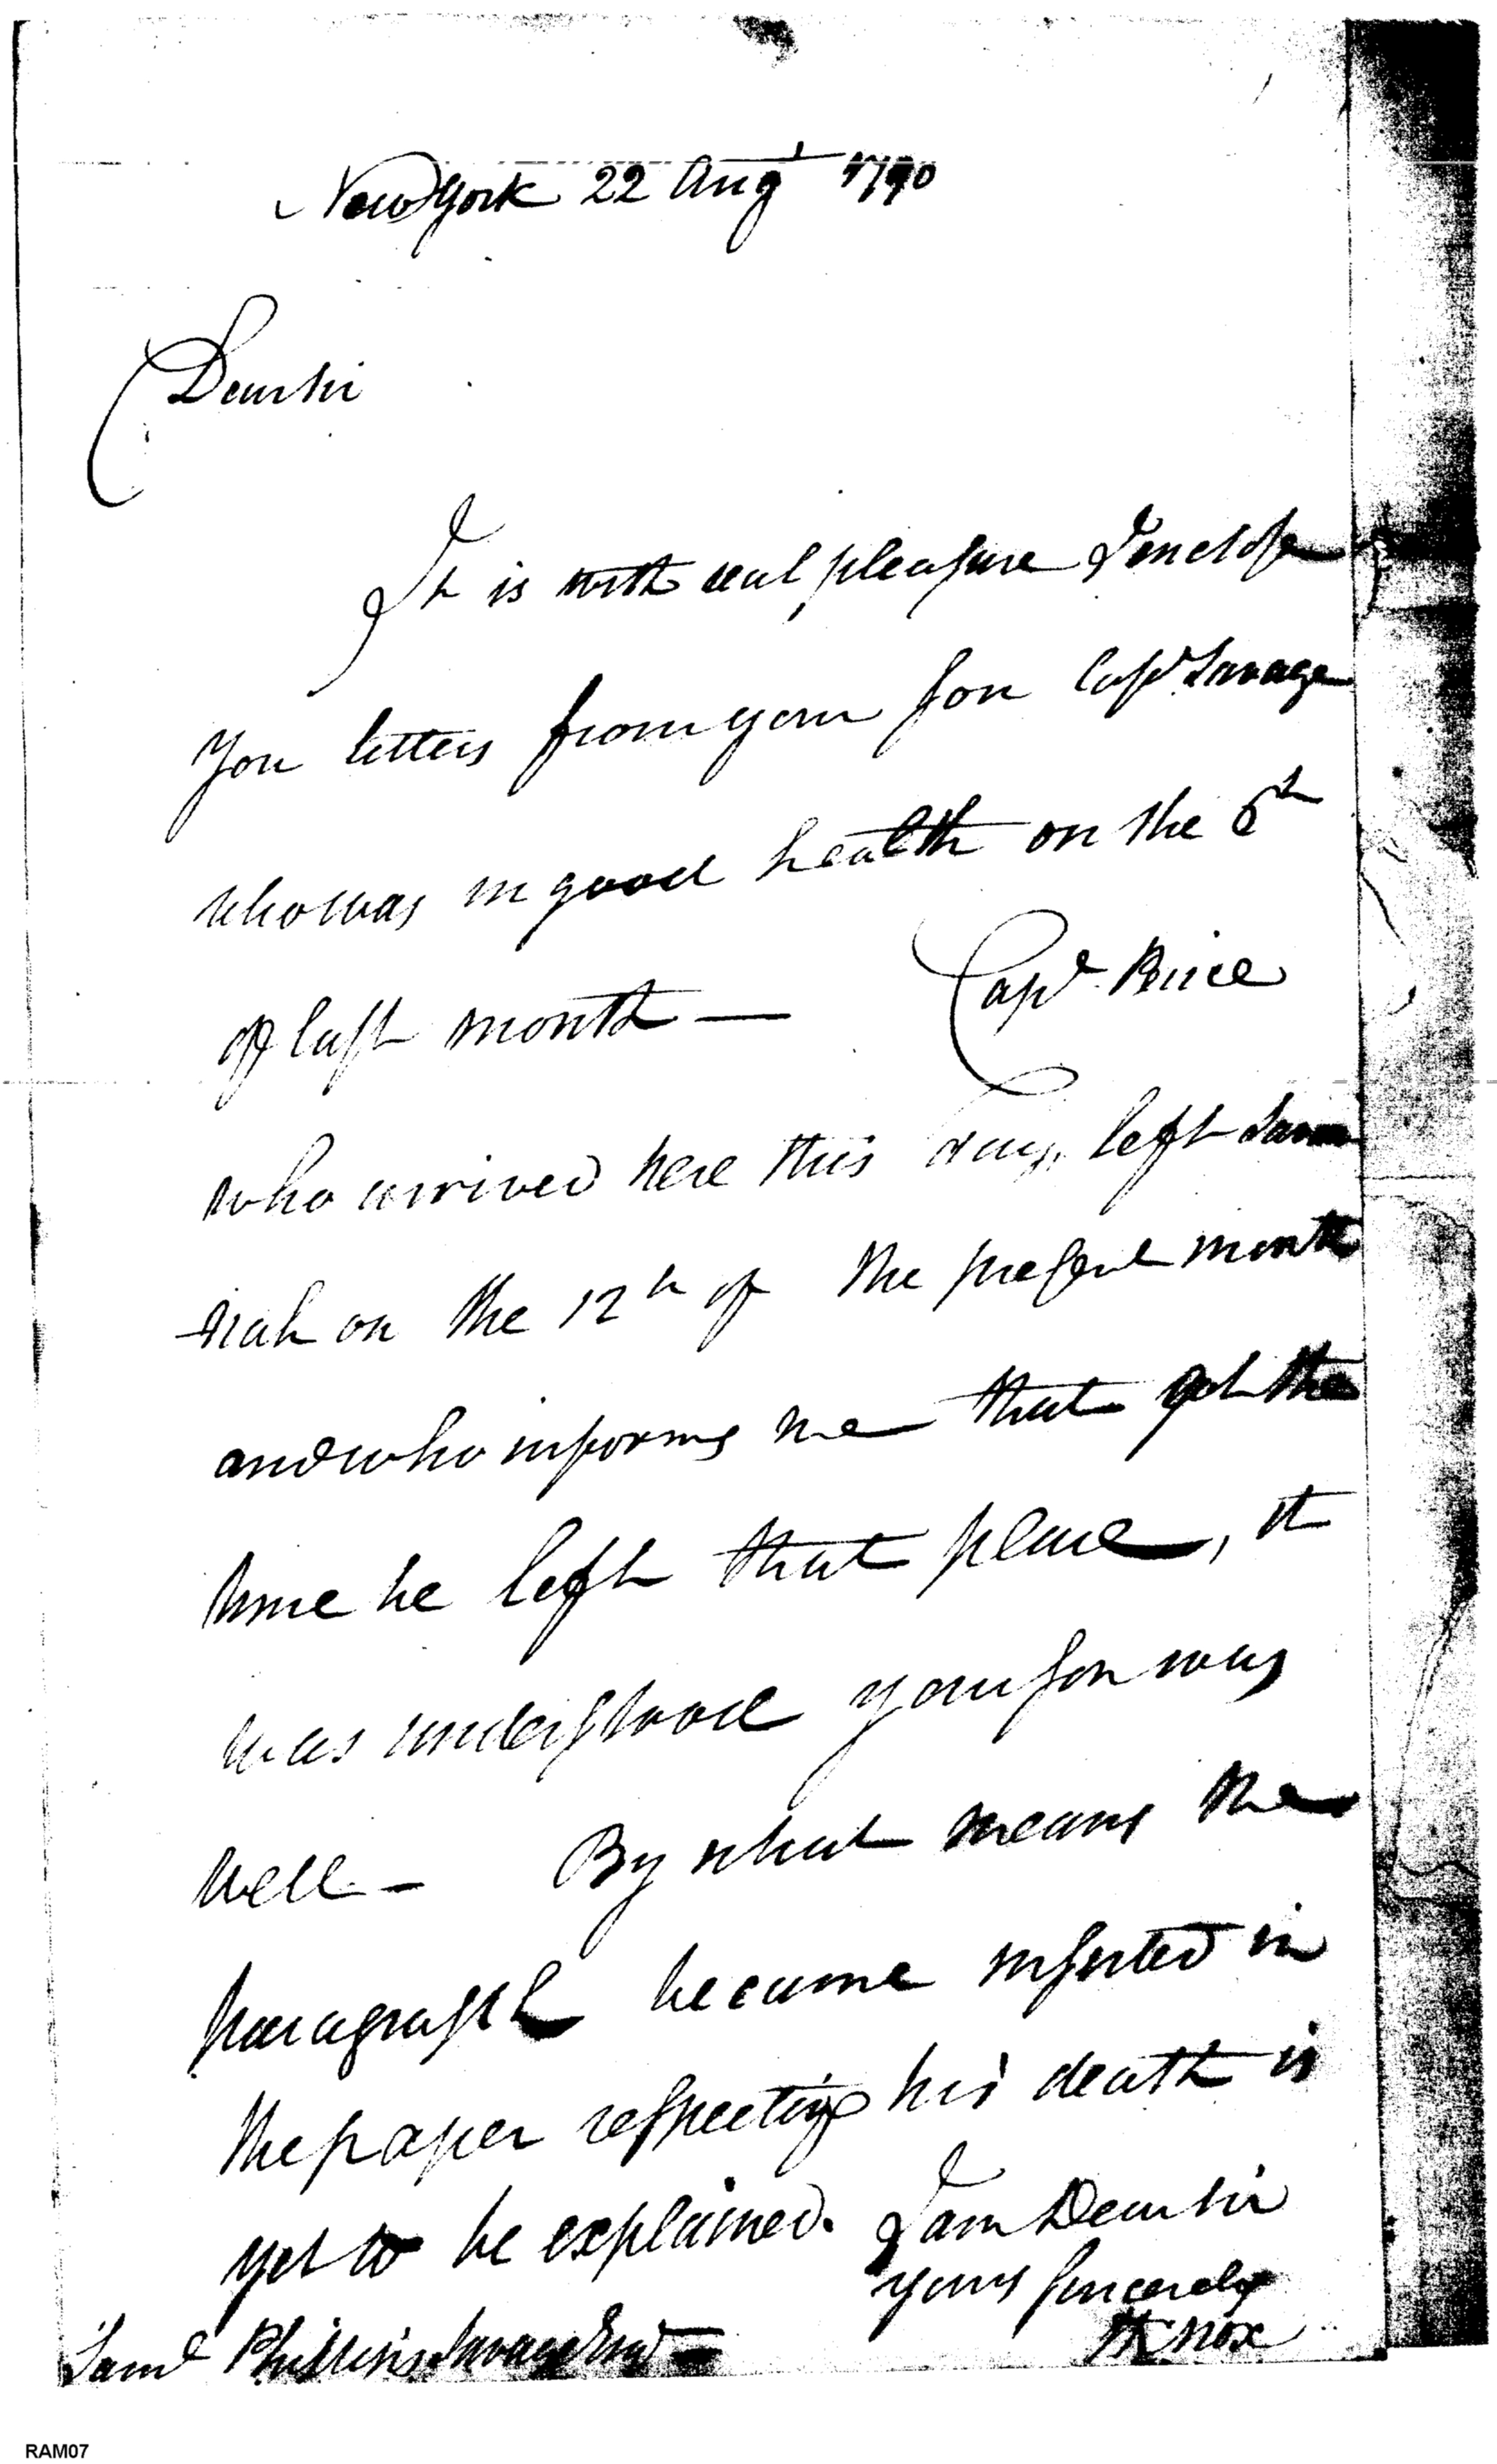 New York 22 Augt 1790
Dear sir
It is with real pleasure I enclose
you letters from your son Capt Savage
who was in good health on the 6th
of last month —
Capt Burce
who arrived here this day, left Savan
nah on the 12th of the present month
and who informs me that at the
time he left that place, it
was understood your son was
well — By what means the
paragraph became inserted in
the paper respecting his death is
yet to be explained. I am Dear sir
yours sincerely
HKnox
Saml Phillips Savage Esqr
RAM07